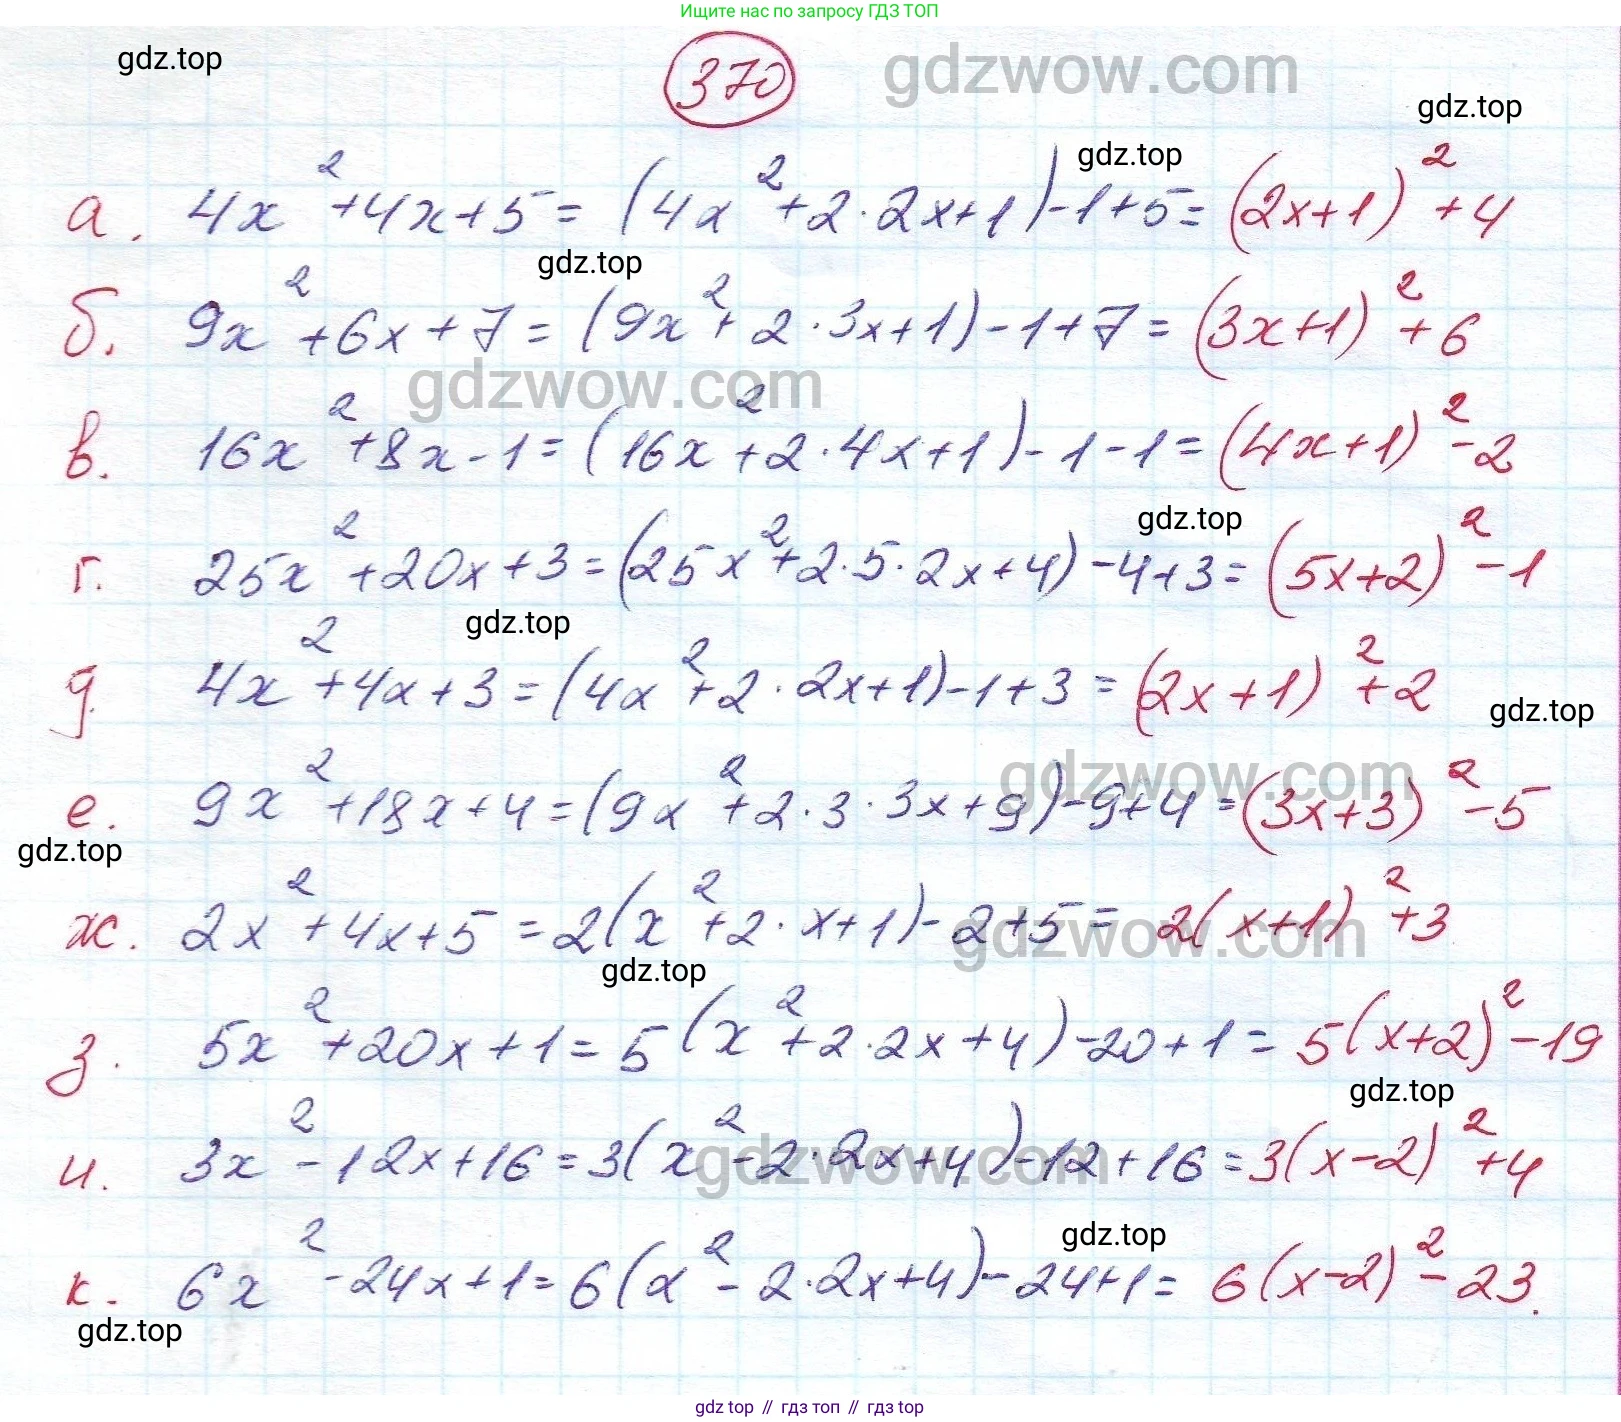 Ищите нас по запросу ГДЗ ТОП
gdz.top
370
gdzwow.com
gdz.top
gdz.top
а. 4x² + 4x + 5 = (4x² + 2 · 2x + 1) - 1 + 5 = (2x + 1)² + 4
gdz.top
б. 9x² + 6x + 7 = (9x² + 2 · 3x + 1) - 1 + 7 = (3x + 1)² + 6
gdzwow.com
в. 16x² + 8x - 1 = (16x² + 2 · 4x + 1) - 1 - 1 = (4x + 1)² - 2
gdz.top
г. 25x² + 20x + 3 = (25x² + 2 · 5 · 2x + 4) - 4 + 3 = (5x + 2)² - 1
gdz.top
д. 4x² + 4x + 3 = (4x² + 2 · 2x + 1) - 1 + 3 = (2x + 1)² + 2
gdz.top
gdzwow.com
е. 9x² + 18x + 4 = (9x² + 2 · 3 · 3x + 9) - 9 + 4 = (3x + 3)² - 5
gdz.top
ж. 2x² + 4x + 5 = 2(x² + 2 · x + 1) - 2 + 5 = 2(x + 1)² + 3
gdzwow.com
gdz.top
з. 5x² + 20x + 1 = 5(x² + 2 · 2x + 4) - 20 + 1 = 5(x + 2)² - 19
gdz.top
и. 3x² - 12x + 16 = 3(x² - 2 · 2x + 4) - 12 + 16 = 3(x - 2)² + 4
gdzwow.com
gdz.top
к. 6x² - 24x + 1 = 6(x² - 2 · 2x + 4) - 24 + 1 = 6(x - 2)² - 23.
gdz.top
gdz top // гдз топ // gdz top